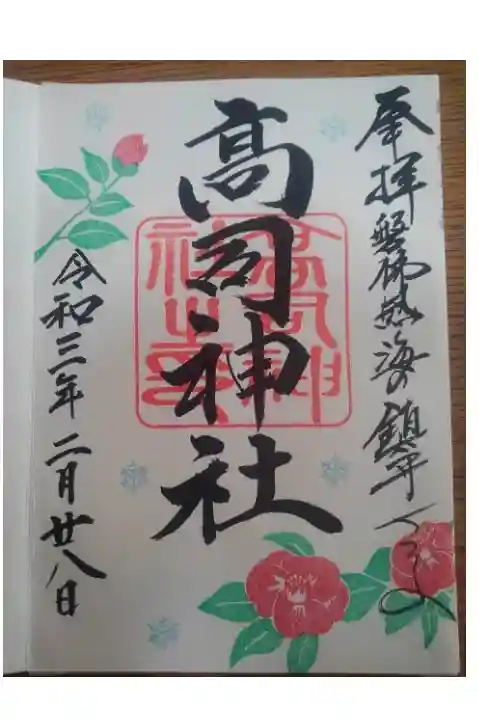 奉拝 磐梯熱海の鎮守
高司神社
高司神社之印
令和三年二月廿八日